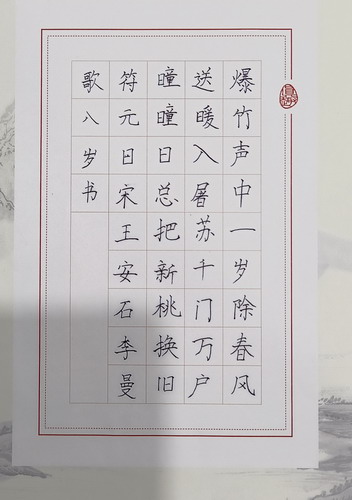 爆竹声中一岁除春风
送暖入屠苏千门万户
曈曈日总把新桃换旧
符元日宋王安石李曼
歌八岁书